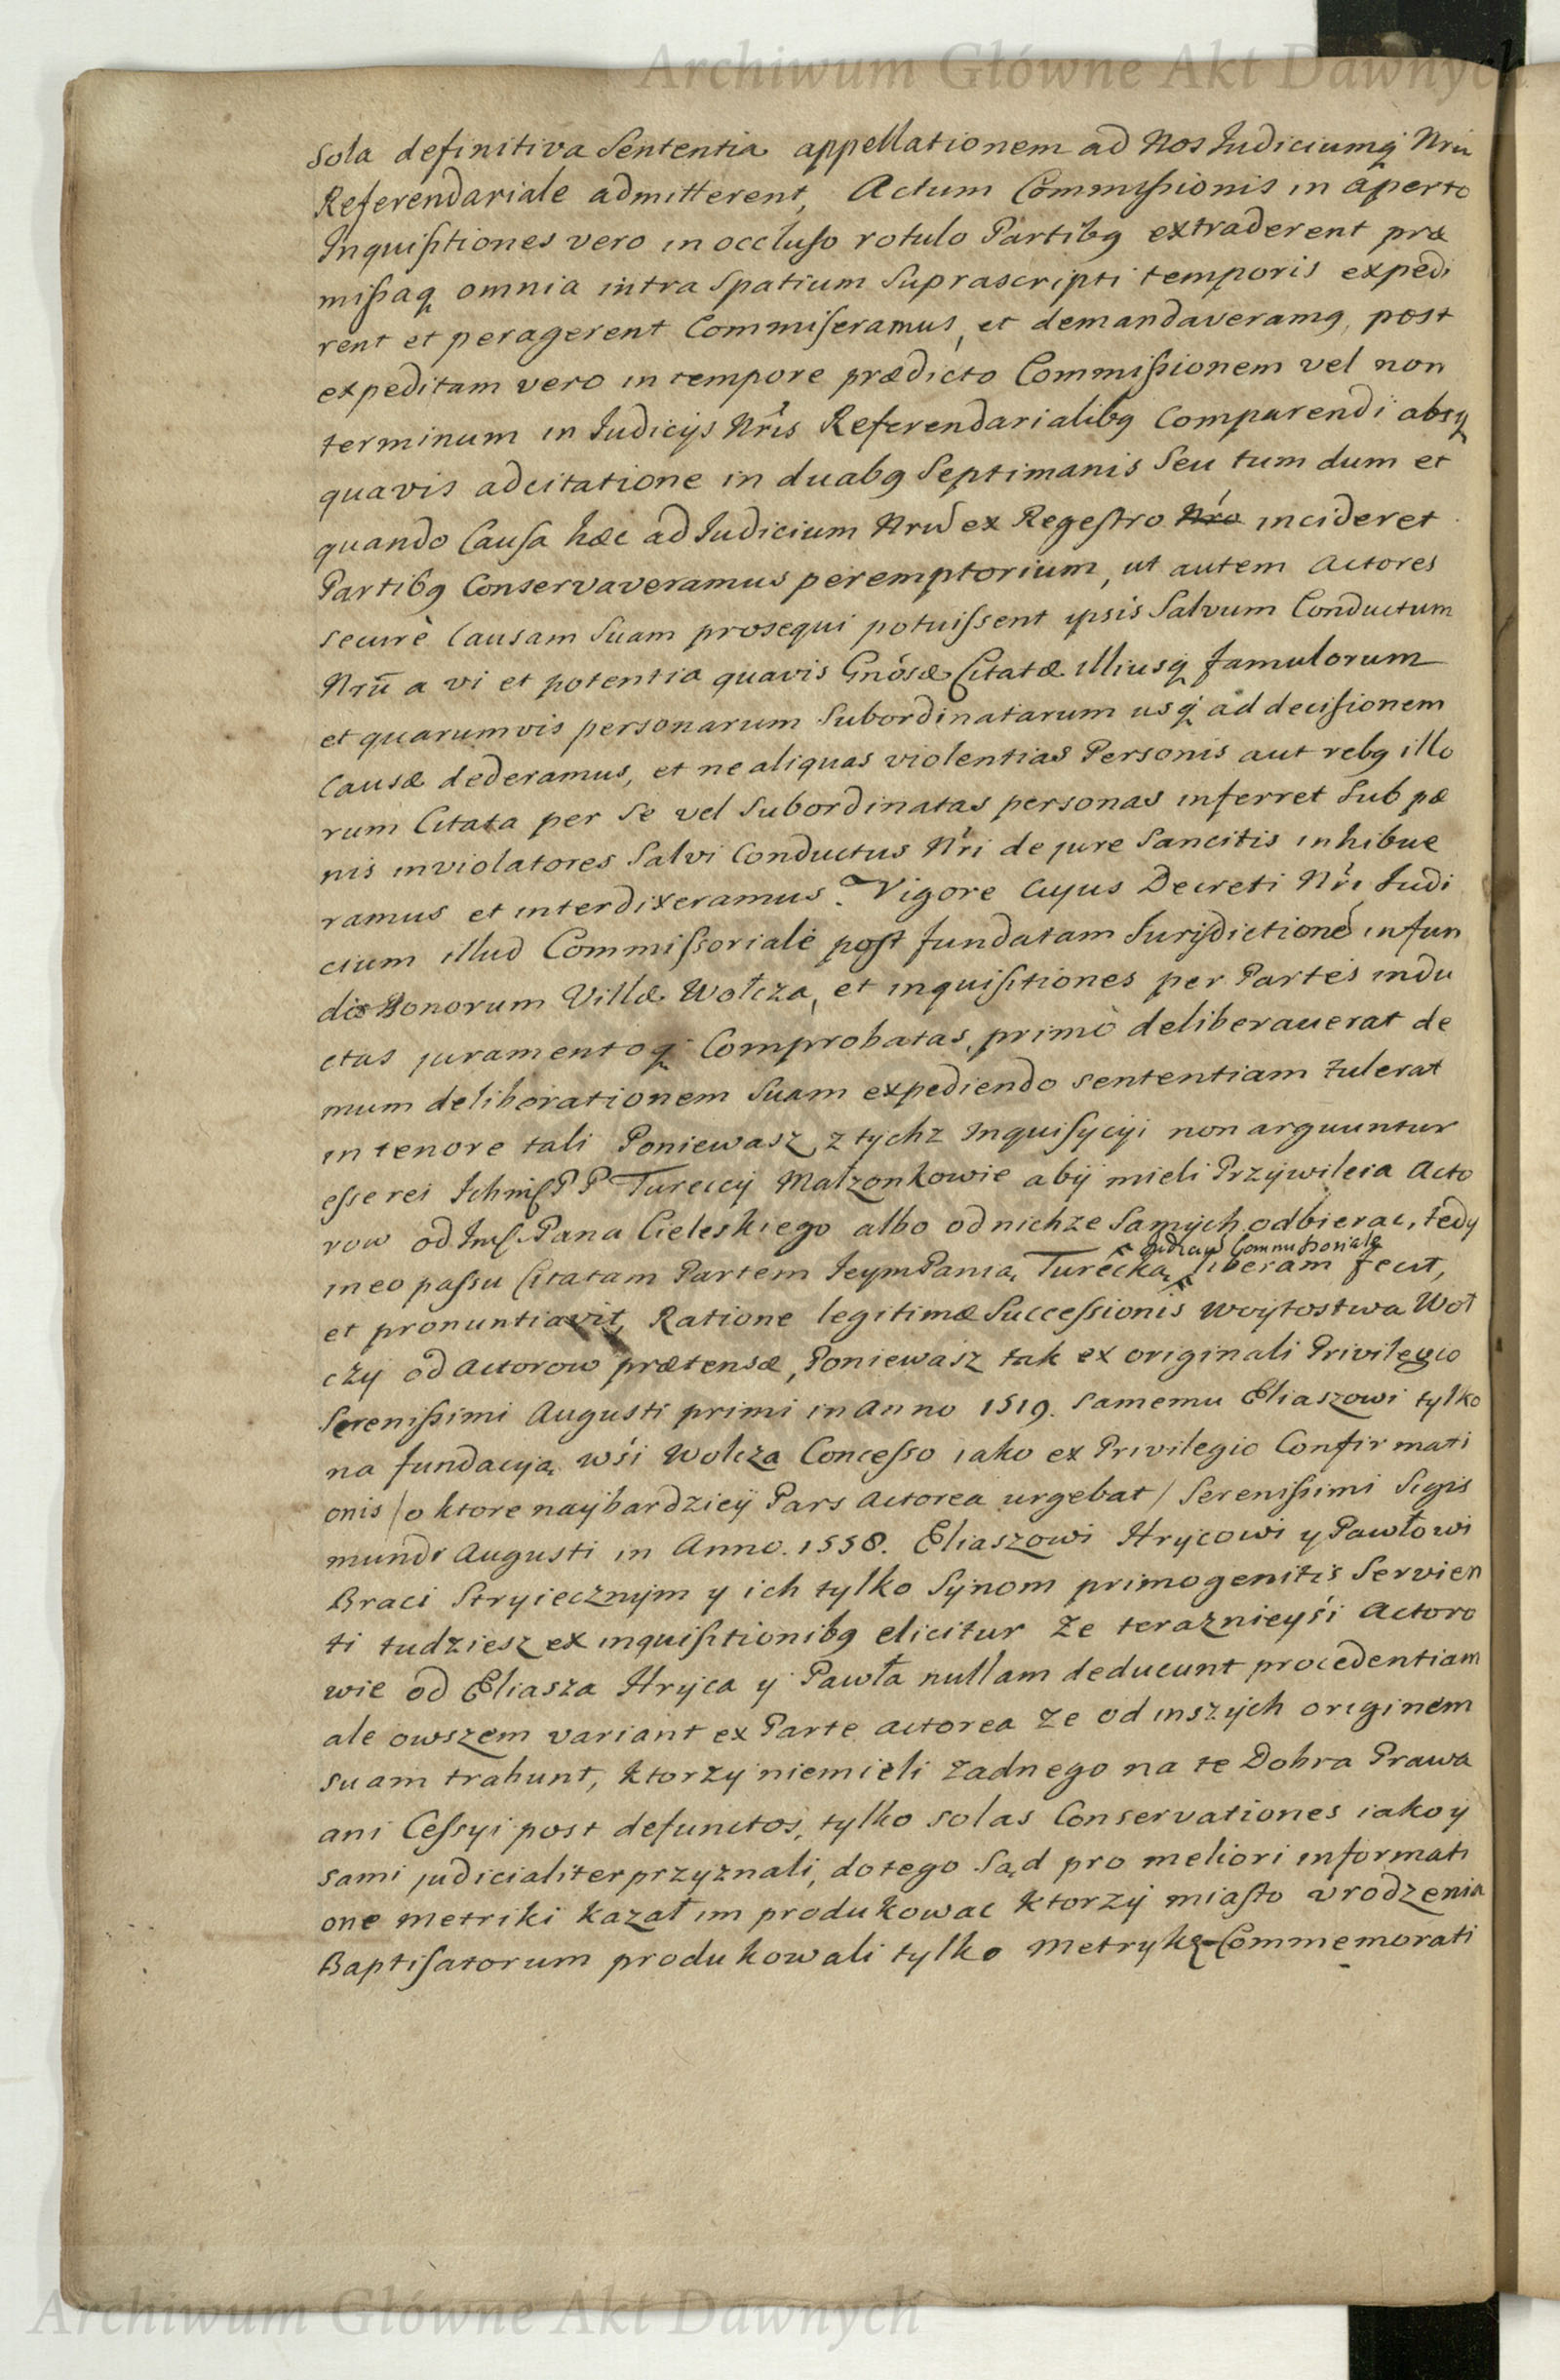 Archiwum Główne Akt Dawnych
sola definitiva Sententia appellationem ad Nos Judiciumq́ Nrũ
Referendariale admitterent, Actum Commißionis in aperto
Inquisitiones vero in occluso rotulo Partibg extraderent præ
mißaq omnia intra Spatium Suprascripti temporis expedi
rent et peragerent Commiseramus, et demandaveramg, post
expeditam vero in tempore prædicto Commißionem vel non
terminum in Judicijs Nr̃is Referendarialibg Comparendi absq
quavis adcitatione in duabg Septimanis Seu tum dum et
quando Causa hæc ad Judicium Nrũ ex Regestro Nŕo incideret
Partibg Conservaveramus peremptorium, ut autem Actores
securè Causam Suam prosequi potuissent ipsis Salvum Conductum
Nrũ a vi et potentia quavis Gnósæ Citatæ illiusq famulorum
et quarumvis personarum Subordinatarum usq́ ad decisionem
Causæ dederamus, et ne aliquas violentias Personis aut rebg illo
rum Citata per Se vel Subordinatas personas inferret Sub pæ
nis inviolatores Salvi Conductus Nŕi de jure Sancitis inhibue
ramus et interdixeramus. Vigore cujus Decreti Nŕi Judi
cium illud Commissoriale post fundatam Jurisdictionẽ in fun
dis Bonorum Villæ Wołcza, et inquisitiones per Partes indu
ctas juramentoq Comprobatas, primò deliberauerat de
mum deliberationem Suam expediendo sententiam tulerat
in tenore tali Poniewasz z tychz Inquisycyi non arguuntur
esse rei Ichmś PP Tureccÿ Małzonkowie abÿ mieli Przÿwileia Acto
row od Jmś Pana Cieleskiego albo od nichze Samÿch odbierac, tedy
Judiciũ Commißoriale
in eo passu Citatam Partem Jeym Panią Turecką liberam fecit,
et pronuntiavit, Ratione legitimæ Successionis woÿtostwa Woł
czÿ od Actorow prætensæ, Poniewasz tak ex originali Privilegio
Serenißimi Augusti primi in Anno 1519. samemu Eliaszowi tylko
na fundacyą wśi Wolcza Concesso iako ex Privilegio Confirmati
onis /o ktore naÿbardzieÿ Pars Actorea urgebat/ Serenißimi Sigis
mundi Augusti in Anno. 1558. Eliaszowi Hrycowi y Pawłowi
Braci Stryiecznÿm y ich tylko Sÿnom primogenitis Servien
ti tudziesz ex inquisitionibg elicitur Ze teraznieyśi Actoro
wie od Eliasza Hrÿca y Pawła nullam deducunt procedentiam
ale owszem variant ex Parte Actorea Ze od inszÿch originem
suam trahunt, ktorzÿ niemieli Zadnego na te Dobra Prawa
ani Cessyi post defunctos, tylko solas Conservationes iako ÿ
sami judicialiter przyznali, do tego Sąd pro meliori informati
one metriki kazał im produkowac ktorzÿ miasto vrodzenia
Baptisatorum produkowali tylko Metrykę Commemorati
Archiwum Główne Akt Dawnych